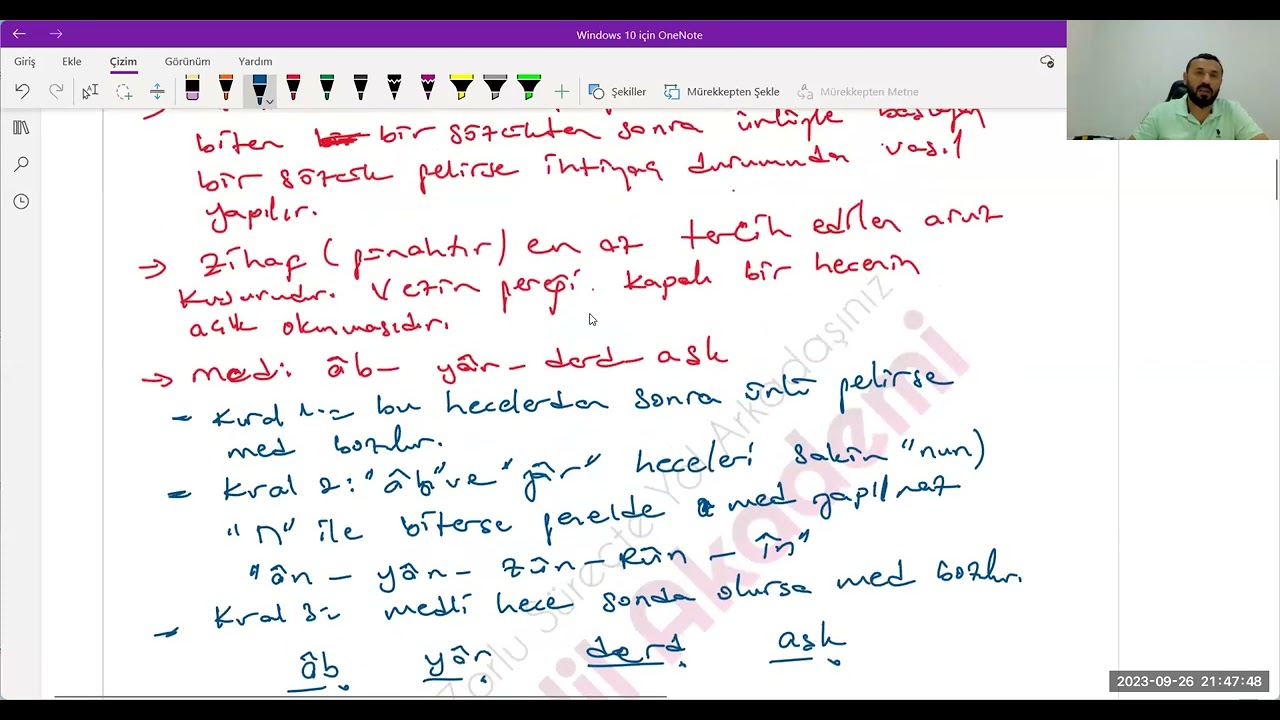 Windows 10 için OneNote
Giriş Ekle Çizim Görünüm Yardım
Şekiller Mürekkepten Şekle Mürekkepten Metne
biten bir sözcükten sonra ünlüyle başlayan
bir sözcük gelirse ihtiyaç durumunda vasıl
yapılır.
→ Zihaf (günahtır) en az tercih edilen aruz
kusurudur. Vezin gereği kapalı bir hecenin
açık okunmasıdır.
→ med: âb- yâr- derd- aşk
- Kural 1:= bu hecelerden sonra ünlü gelirse
med bozulur.
- Kural 2: "âb" ve "yâr" heceleri sakin "nun)
"n" ile biterse genelde med yapılmaz
"ân - yân - zûn - Rûn - în"
- Kural 3:= medli hece sonda olursa med bozulur.
âb yâr derd aşk
Zorlu Süreçte Yol Arkadaşınız
dil Akademi
2023-09-26 21:47:48